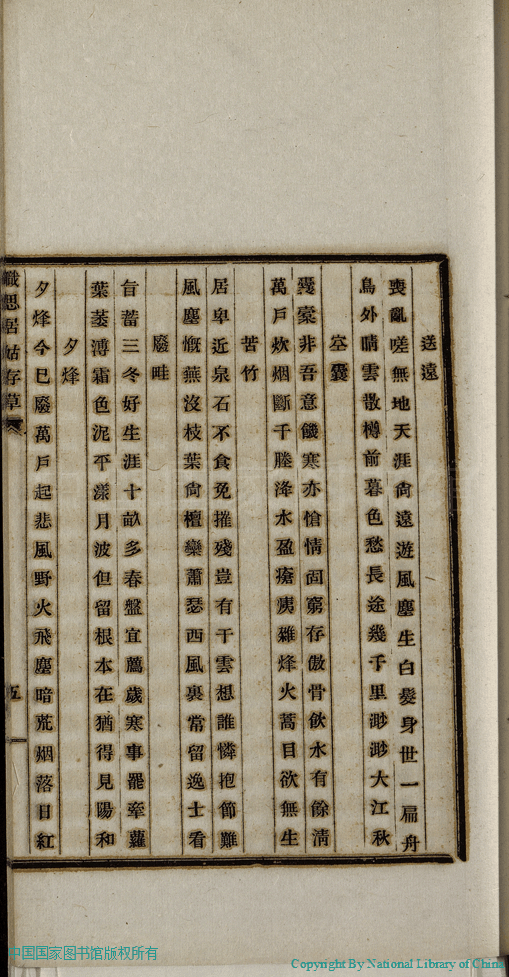 送遠
喪亂嗟無地天涯尙遠遊風塵生白髮身世一扁舟
鳥外晴雲散樽前暮色愁長途幾千里渺渺大江秋
空囊
囊橐非吾意饑寒亦愴情固窮存傲骨飲水有餘淸
萬戶炊烟斷千塍洚水盈瘡痍雜烽火蒿目欲無生
苦竹
居卑近泉石不食免摧殘豈有干雲想誰憐抱節難
風塵慨蕪沒枝葉尙檀欒蕭瑟西風裏常留逸士看
廢畦
旨蓄三冬好生涯十畝多春盤宜薦歲寒事罷牽蘿
葉萎溥霜色泥平漾月波但留根本在猶得見陽和
夕烽
夕烽今已廢萬戶起悲風野火飛塵暗荒烟落日紅
思居姑存草
五
中国国家图书馆版权所有
Copyright By National Library of China